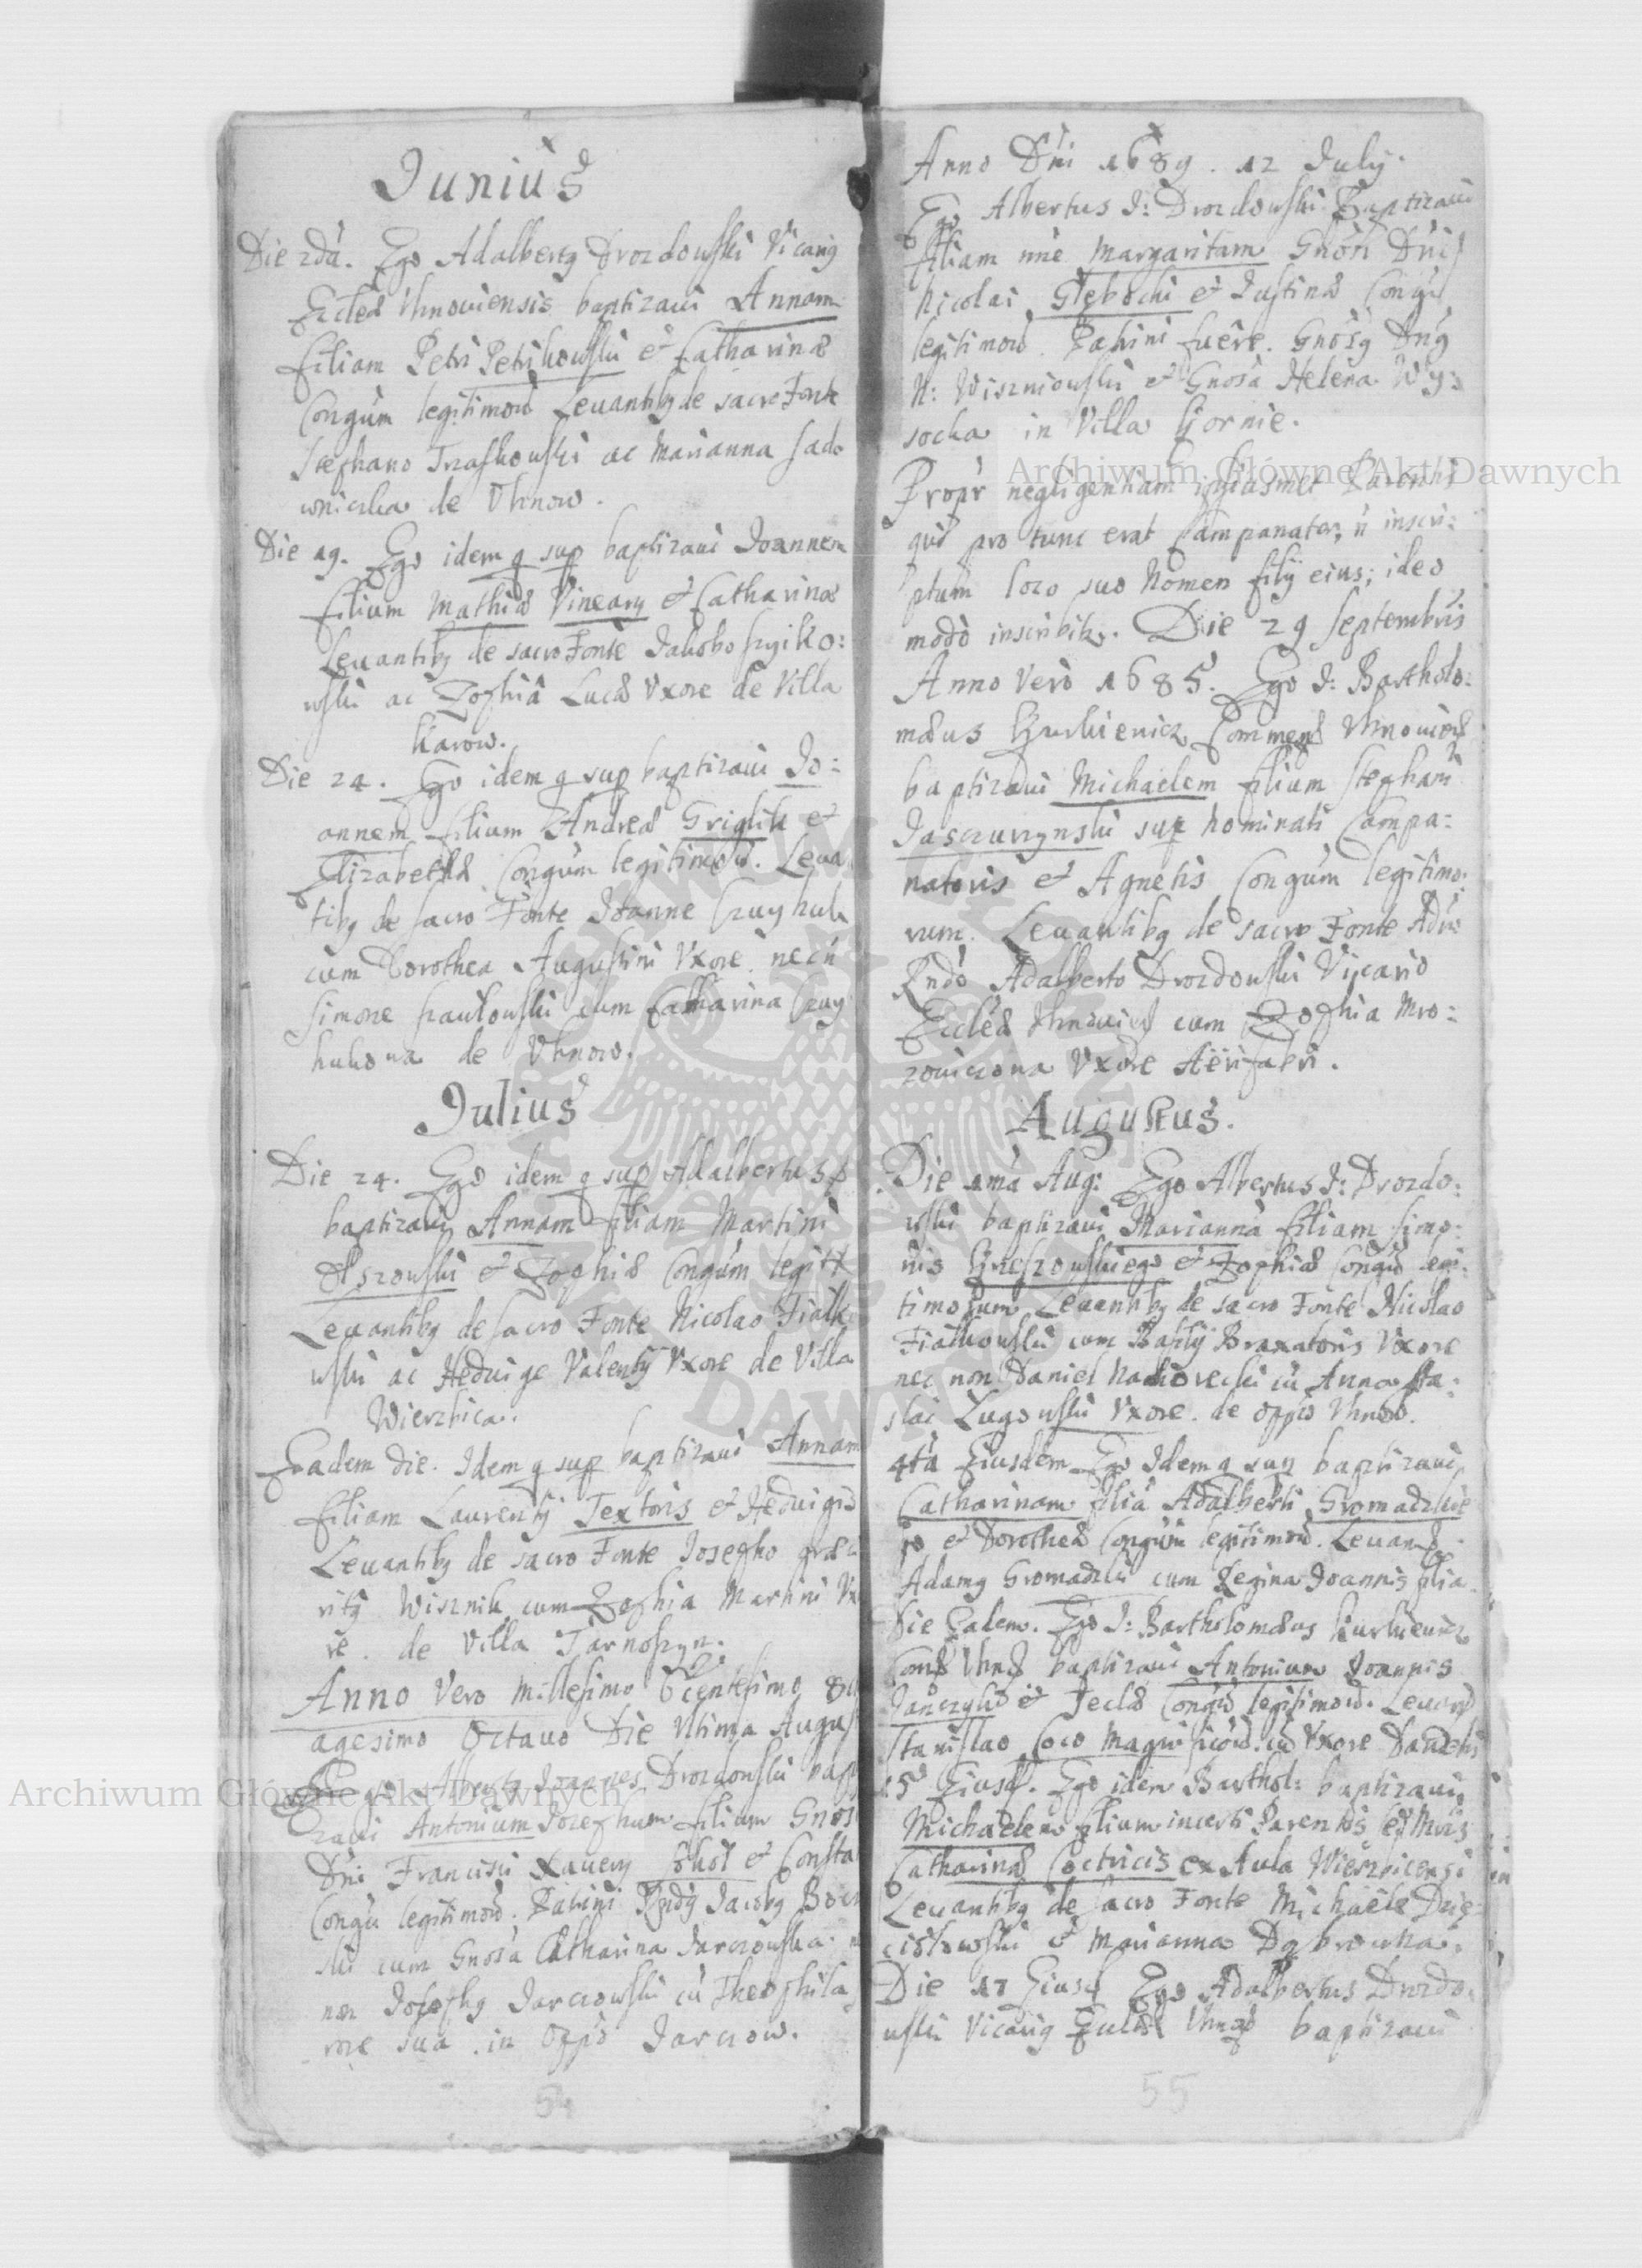 Junius
Die 2da. Ego Adalbertg Drozdowski Vicarig
Eccles Uhnouiensis baptizaui Annam
filiam Petri Petrikowski et Catharinæ
Congum legitimor Leuantibg de sacro Fonte
Stephano Traskowski ac Marianna Sado
wniczka de Uhnow.
Die 19. Ego idem q sup baptizaui Joannem
filium Mathiæ Vineary et Catharinæ
Leuantibg de sacro Fonte Jakobo
wski ac Zophia Lucæ Uxore de Villa
Karow.
Die 24. Ego idem q sup baptizaui Jo:
annem filium Andreæ Griglik et
Elizabethæ Congum legitimor. Leua
tibg de sacro Fonte Joanne Czuyhuk
cum Dorothea Augustini Uxore necu
Simone Pawlowski cum Catharina Czuy
hukowa de Uhnow.
Julius
Die 24. Ego idem q sup Adalbertus
baptizaui Annam filiam Martini
Olszowski et Zophiæ Congum legitt
Leuantibg de sacro Fonte Nicolao Fialk
wski ac Heduige Valentij Uxore de Villa
Wierzbica.
Eadem die. Idem q sup baptizaui Annam
filiam Laurentij Textoris et Heduigis
Leuantibg de sacro Fonte Josepho
Wisznik cum Zophia Martini Ux
re. de Villa Tarnoszyn.
Anno Vero Millesimo 6centesimo 8tu
agesimo Octauo Die Ultima Augus
Ego Albertg Joannes Drozdowski bapt
zaui Antonium Josephum filium Gnosi
Dni Francisci Xauery Sokol et Consta
Congu legitimor. Patrini Rndg Jacobg
ski cum Gnosa Catharina Jarczowska. n
non Josephg Jarczowski cu Theophila
xore sua. in Oppo Jarczow.
54
Anno Dni 1689. 12 July.
Ego Albertus J: Drozdowski Baptizaui
filiam nne Margaritam Gnosi Dni
Nicolai Głębocki et Justinæ Congu
legitimor. Patrini fuere. Gnosg Dng
N: Wiszniowski et Gnosa Helena Wy:
socka in Villa Kornie.
Propr negligentiam ipsiusmet Parentis
qui pro tunc erat Campanator, n inscri:
ptum loco suo Nomen filij eius; ideo
modo inscribitr. Die 29 Septembris
Anno Vero 1685. Ego J: Bartholo:
mæus Kurkiewicz Commend Uhnouiens
baptizaui Michaelem filium Stephani
Jaszczurzynski sup nominati Campa:
natoris et Agnetis Congum legitimo:
rum. Leuantibg de sacro Fonte Adm
Rndo Adalberto Drozdowski Vicario
Eccles Uhnouien cum Zophia Mro:
zowiczowa Uxore Aerifabri.
Augustus.
Die 1ma Aug: Ego Albertus J: Drozdo:
wski baptizaui Marianna filiam Simo:
nis Kreszowskiego et Zophiæ Congu legi:
timorum Leuantibg de sacro Fonte Nicolao
Fialkowski cum Basilij Braxatoris Uxore
nec non Daniel cu Anna Sta:
slai Ługowski Uxore. de Oppo Uhnow.
4ta Eiusdem Ego Idem q sup baptizaui
Catharinam filia Adalberti Gromadzkie
go et Dorotheæ Congum legitimor. Leuant
Adamg Gromadzki cum Regina Joannis filia
Die Eadem. Ego J: Bartholomæus Kurkiewicz
Comd Uhns baptizaui Antonium Joannis
et Teclæ Congu legitimor. Leuant
Stanislao Coco Magnificor. cu Uxore Danielis
15 Eiusd. Ego idem Barthol: baptizaui
Michaelem filium incerti Parentis sed Mris
Catharinæ Coctricis ex Aula Wierzbicensi
Leuantibg de sacro Fonte Michaele Dzię
ciołowski et Marianna Dąbrowka.
Die 17 Eiusd Ego Adalbertus Drozdo:
wski Vicarig Eccles Uhnos baptizaui
55
Archiwum Główne Akt Dawnych
Archiwum Główne Akt Dawnych